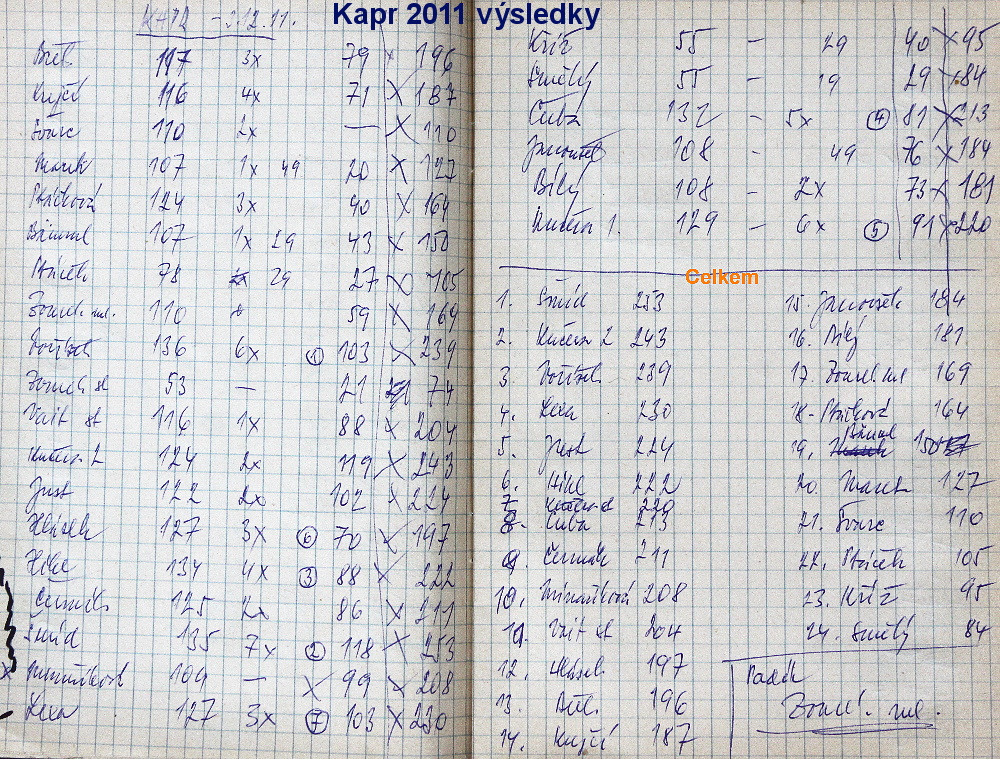 Kapr 2011 výsledky
KAPR - 3.12.11.
117 3x 79 x 196
Krejčí 116 4x 71 x 187
Švarc 110 2x — x 110
Marek 107 1x 49 20 x 127
Ptáčková 124 3x 40 x 164
107 1x 29 43 x 150
Ptáček 78 29 27 x 105
Zoucl. ml. 110 59 x 169
Voříšek 136 6x ① 103 x 239
st 53 — 21 74
Vait st 116 1x 88 x 204
Kučera 2 124 2x 119 x 243
Just 122 2x 102 x 224
Hlásek 127 3x ⑥ 70 x 197
134 4x ③ 88 x 222
Čermák 125 2x 86 x 211
Šmíd 135 7x ② 118 x 253
109 — x 99 x 208
Lexa 127 3x ⑦ 103 x 230
Kříž 55 - 29 40 x 95
Smělý 55 - 19 29 x 84
Čuba 132 - 5x ④ 81 x 213
Janoušek 108 - 49 76 x 184
Bílý 108 - 2x 73 x 181
Kučera 1. 129 - 6x ⑤ 91 x 220
Celkem
1. Šmíd 253
2. Kučera 2 243
3. Voříšek 239
4. Lexa 230
5. Just 224
6. 222
7. Kučera 220
8. Čuba 213
9. Čermák 211
10. 208
11. Vait st 204
12. Hlásek 197
13. 196
14. Krejčí 187
15. Janoušek 184
16. Bílý 181
17. Zoucl. ml 169
18. Ptáčková 164
19. 150
20. Marek 127
21. Švarc 110
22. Ptáček 105
23. Kříž 95
24. Smělý 84
Zoucl. ml.